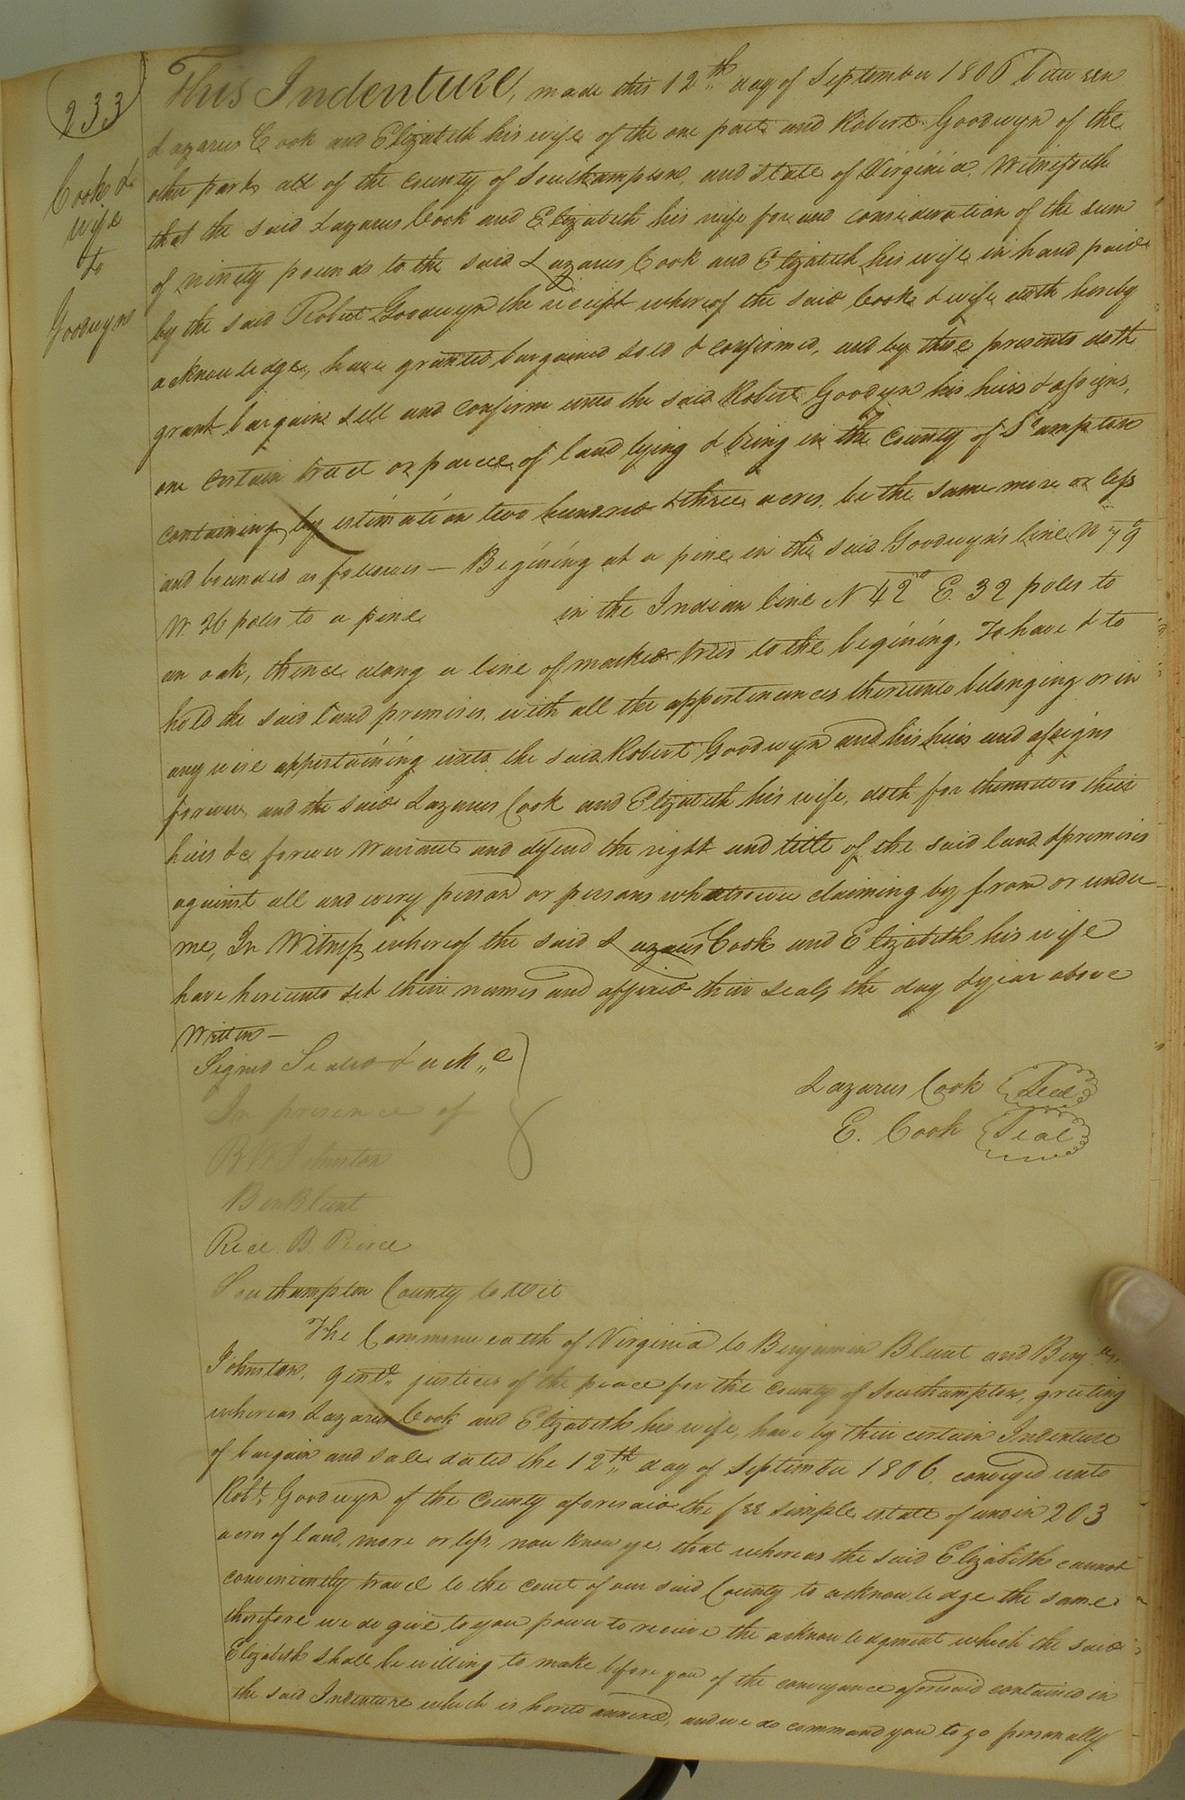 233
Cook &
wife
to
Goodwyn
This Indenture, made this 12th day of September 1806 between
Lazarus Cook and Elizabeth his wife of the one part and Robert Goodwyn of the
other part, all of the county of Southampton, and state of Virginia, Witnesseth
that the said Lazarus Cook and Elizabeth his wife for and consideration of the sum
of ninety pounds to the said Lazarus Cook and Elizabeth his wife in hand paid
by the said Robert Goodwyn the receipt whereof the said Cook & wife doth hereby
acknowledge, have granted bargained sold & confirmed, and by these presents doth
grant bargain sell and confirm unto the said Robert Goodwyn his heirs & assigns,
one certain tract or parcel of land lying & being in the County of So ampton
containing by estimation two hundred & three acres, be the same more or less
and bounded as follows — Begining at a pine in the said Goodwyn's line N 79°
W. 26 poles to a pine in the Indian line N 42° E. 32 poles to
an oak, thence along a line of marked trees to the begining, To have & to
hold the said land premises, with all the appertinances thereunto belonging or in
any wise appertaining unto the said Robert Goodwyn and his heirs and assigns
forever, and the said Lazarus Cook and Elizabeth his wife, doth for themselves their
heirs &c forever warrant and defend the right and title of the said land & premises
against all and every person or persons whatsoever claiming by from or under
me, In Witness whereof the said Lazarus Cook and Elizabeth his wife
have hereunto set their names and affixed their seals the day & year above
written —
Signed Sealed & ack,,d
In presence of
Lazarus Cook Seal
E. Cook Seal
B Johnston
Ben Blunt
Rice B. Pierce
Southampton County to wit
The Commonwealth of Virginia to Benjamin Blunt and Benj
Johnston, Gent. justices of the peace for the county of Southampton, greeting
whereas Lazarus Cook and Elizabeth his wife, have by their certain Indenture
of bargain and sale dated the 12th day of September 1806, conveyed unto
Robt Goodwyn of the County aforesaid the fee simple estate of and in 203
acres of land, more or less, now know ye, that whereas the said Elizabeth cannot
conveniently travel to the court of our said County to acknowledge the same
therefore we do give to you power to receive the acknowledgment which the said
Elizabeth shall be willing to make before you of the conveyance aforesaid contained in
the said Indenture which is hereto annexed, and we do command you to go personally